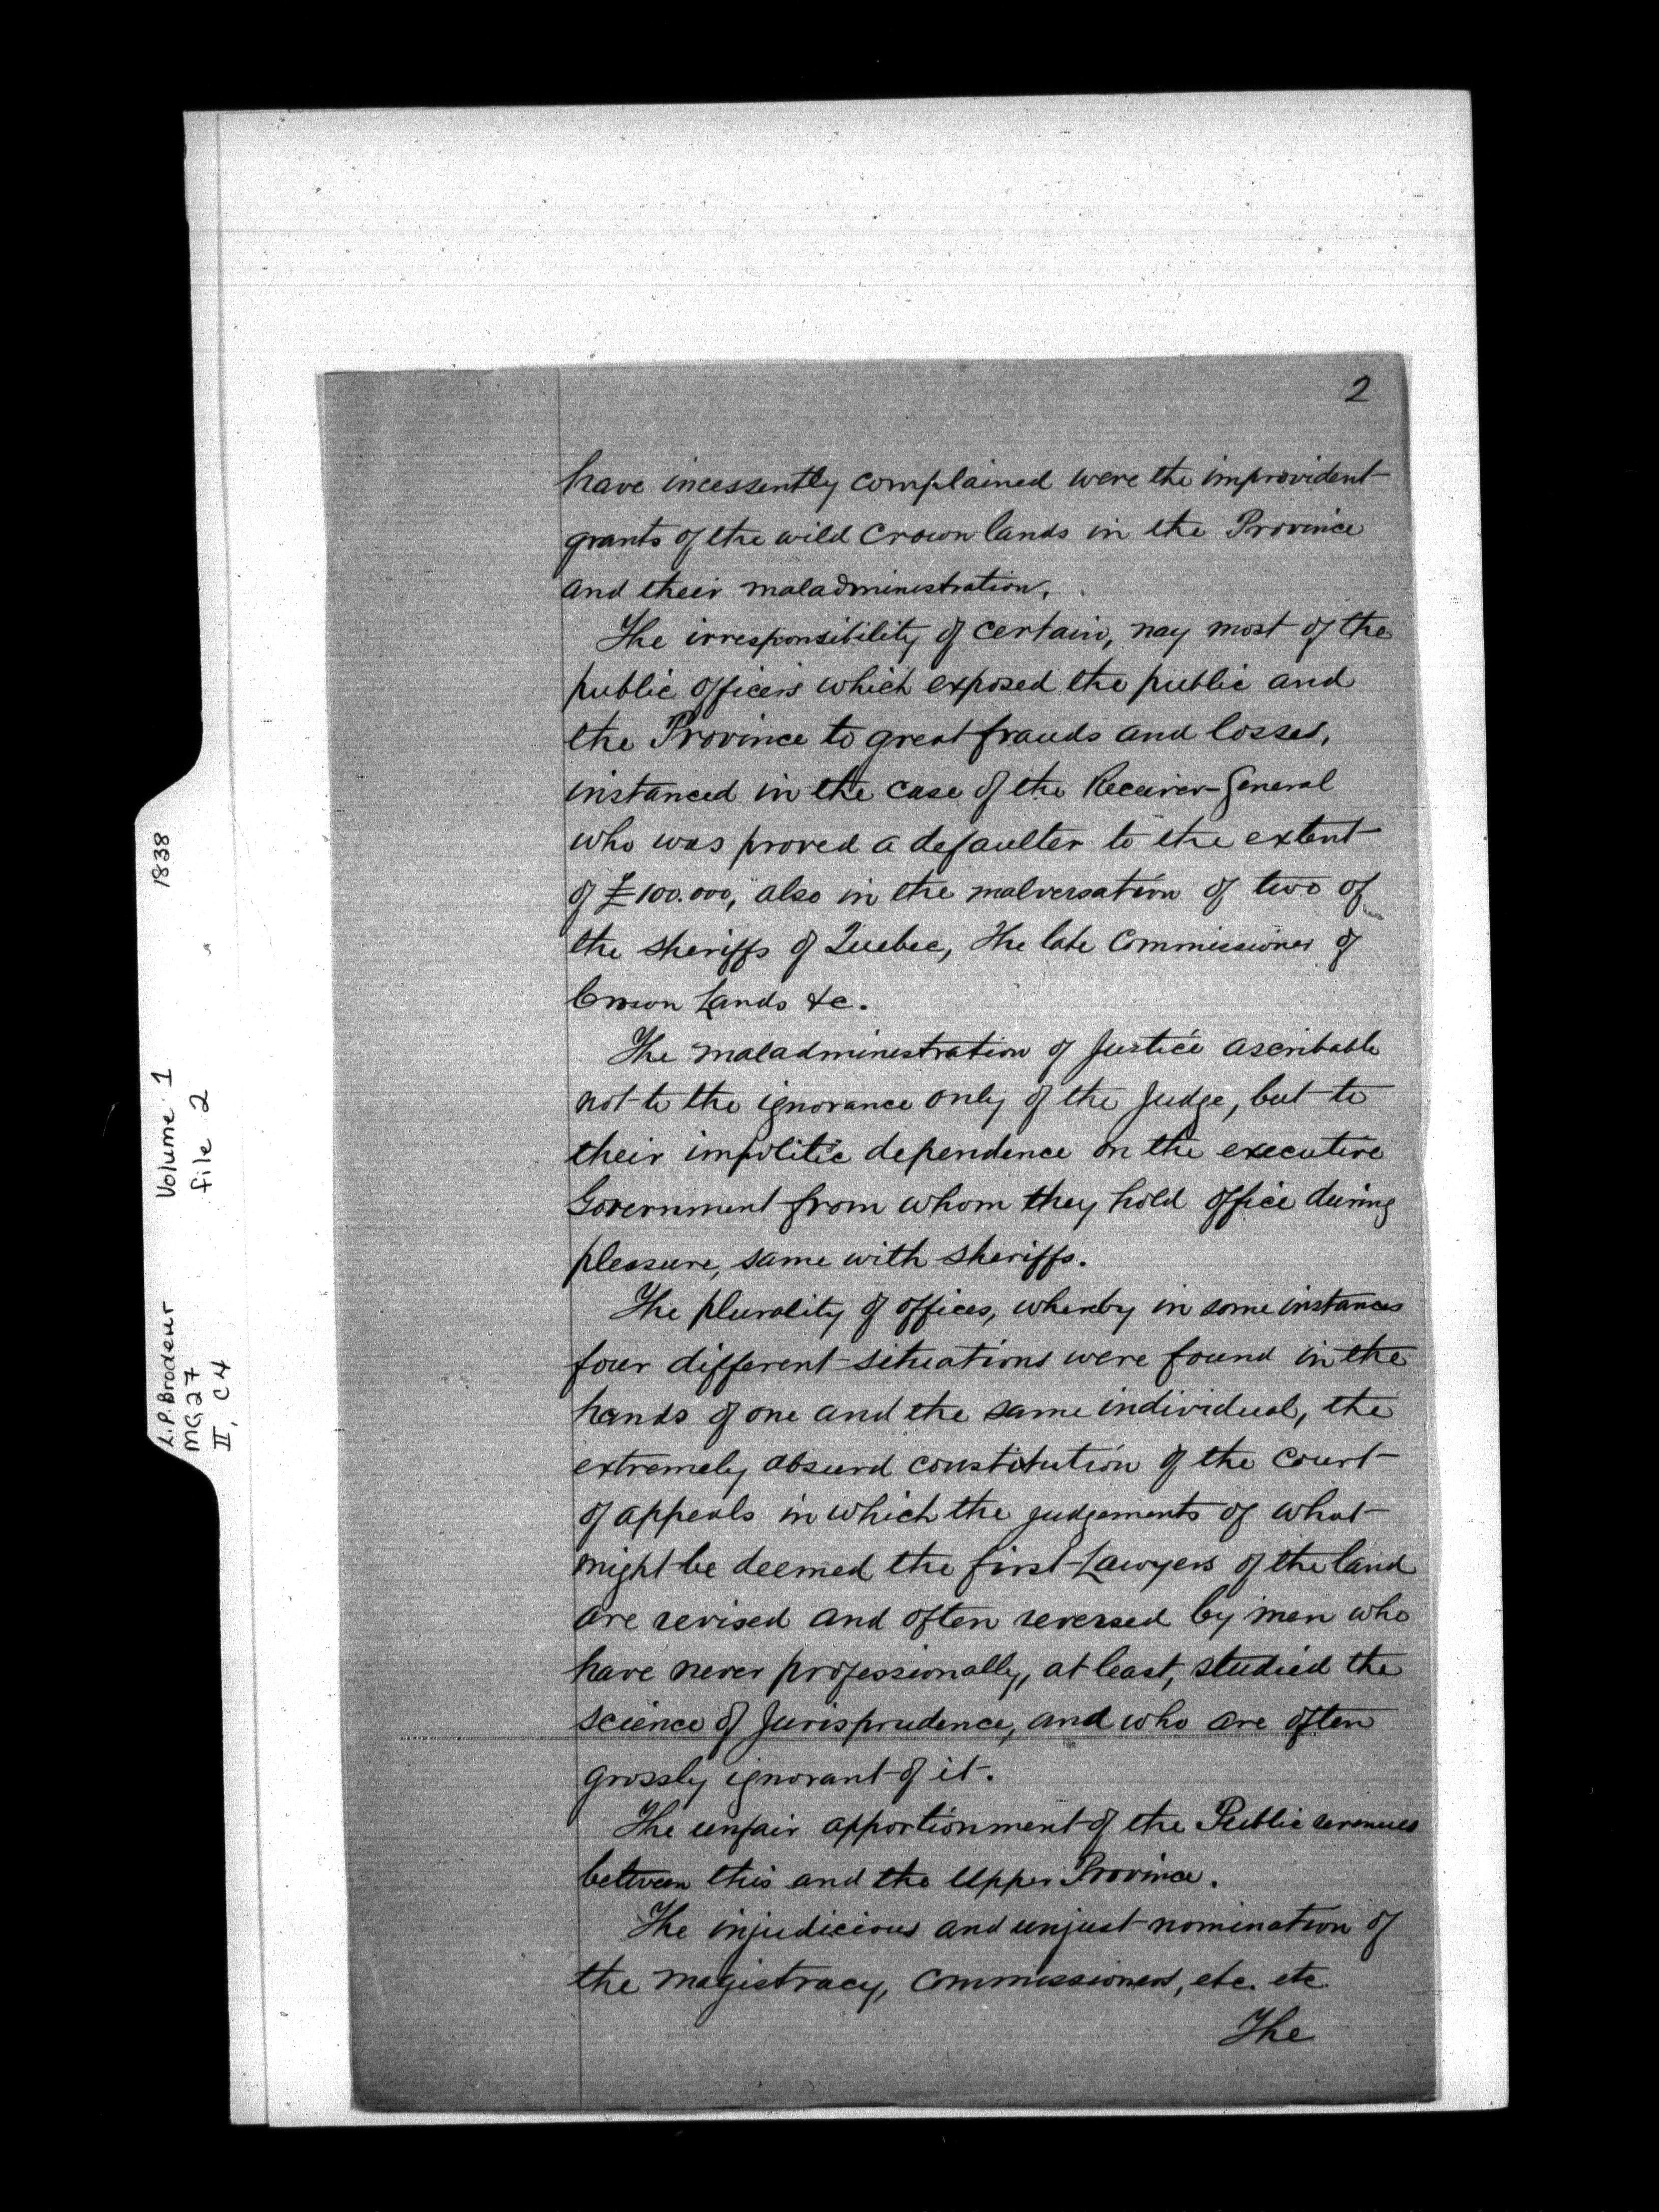 2
have incessently complained were the improvident
grants of the wild Crown lands in the Province
and their maladministration.
The irresponsibility of certain, nay most of the
public officers which exposed the public and
the Province to great frauds and losses,
instanced in the case of the Receiver-General
who was proved a defaulter to the extent
of £100.000, also in the malversation of two of
the sheriffs of Quebec, the late Commissioner of
Crown Lands &c.
The maladministration of Justice ascribable
not to the ignorance only of the Judge, but to
their impolitic dependence on the executive
Government from whom they hold office during
pleasure, same with sheriffs.
The plurality of offices, whereby in some instances
four different situations were found in the
hands of one and the same individual, the
extremely absurd constitution of the Court
of appeals in which the judgements of what
might be deemed the first Lawyers of the land
are revised and often reversed by men who
have never professionally, at least, studied the
science of Jurisprudence, and who are often
grossly ignorant of it.
The unfair apportionment of the Public revenues
between this and the Upper Province.
The injudicious and unjust nomination of
the magistracy, Commissioners, etc. etc.
The
L.P. Brodeur Volume 1 1838
MG27 file 2
II, C4